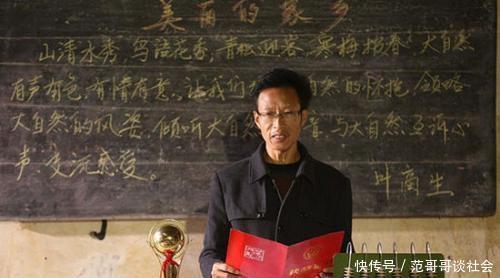 美丽的家乡
山清水秀,鸟语花香,青松迎客,寒梅报春,大自然
有声有色,有情有意,让我们 自然的怀抱,领略
大自然的风姿,倾听大自然 音,与大自然互诉心
声,交流感受。
叶高生
快传号/范哥哥谈社会